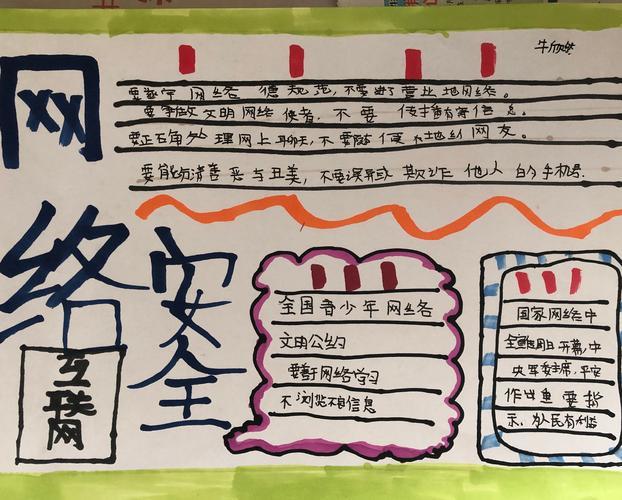 牛欣然
网络安全
要遵守网络道德规范,不要进营业地网络。
要争做文明网络使者,不要传播有害信息。
要正确处理网上聊天,不要随便
网友。
要能分清善恶与丑美,不要误导或欺诈他人的手机号.
互联网
全国青少年网络
文明公约
要善于网络学习
不浏览不良信息
国家网络中
全 周日开幕,中
央 委主席,平安
作出重要指
示,为人民有利益